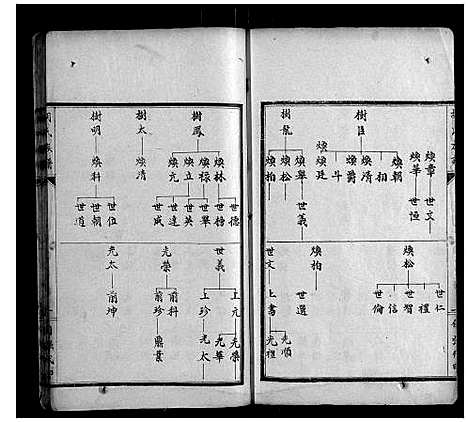 煥章
世文
煥華
世恒
樹臣
煥朝
相
煥清
煥爵
斗
煥廷
樹龍
煥舉
世義
煥松
煥柏
煥松
世仁
禮
世智
信
世倫
煥柏
世選
世文
上書
光順
光禮
樹鳳
煥林
世德
世榜
煥祿
世舉
煥立
世英
世達
煥元
世成
樹太
煥清
樹明
煥科
世伍
世朝
世道
世義
上元
光榮
光華
上珍
光太
光榮
前科
前珍
光太
前坤